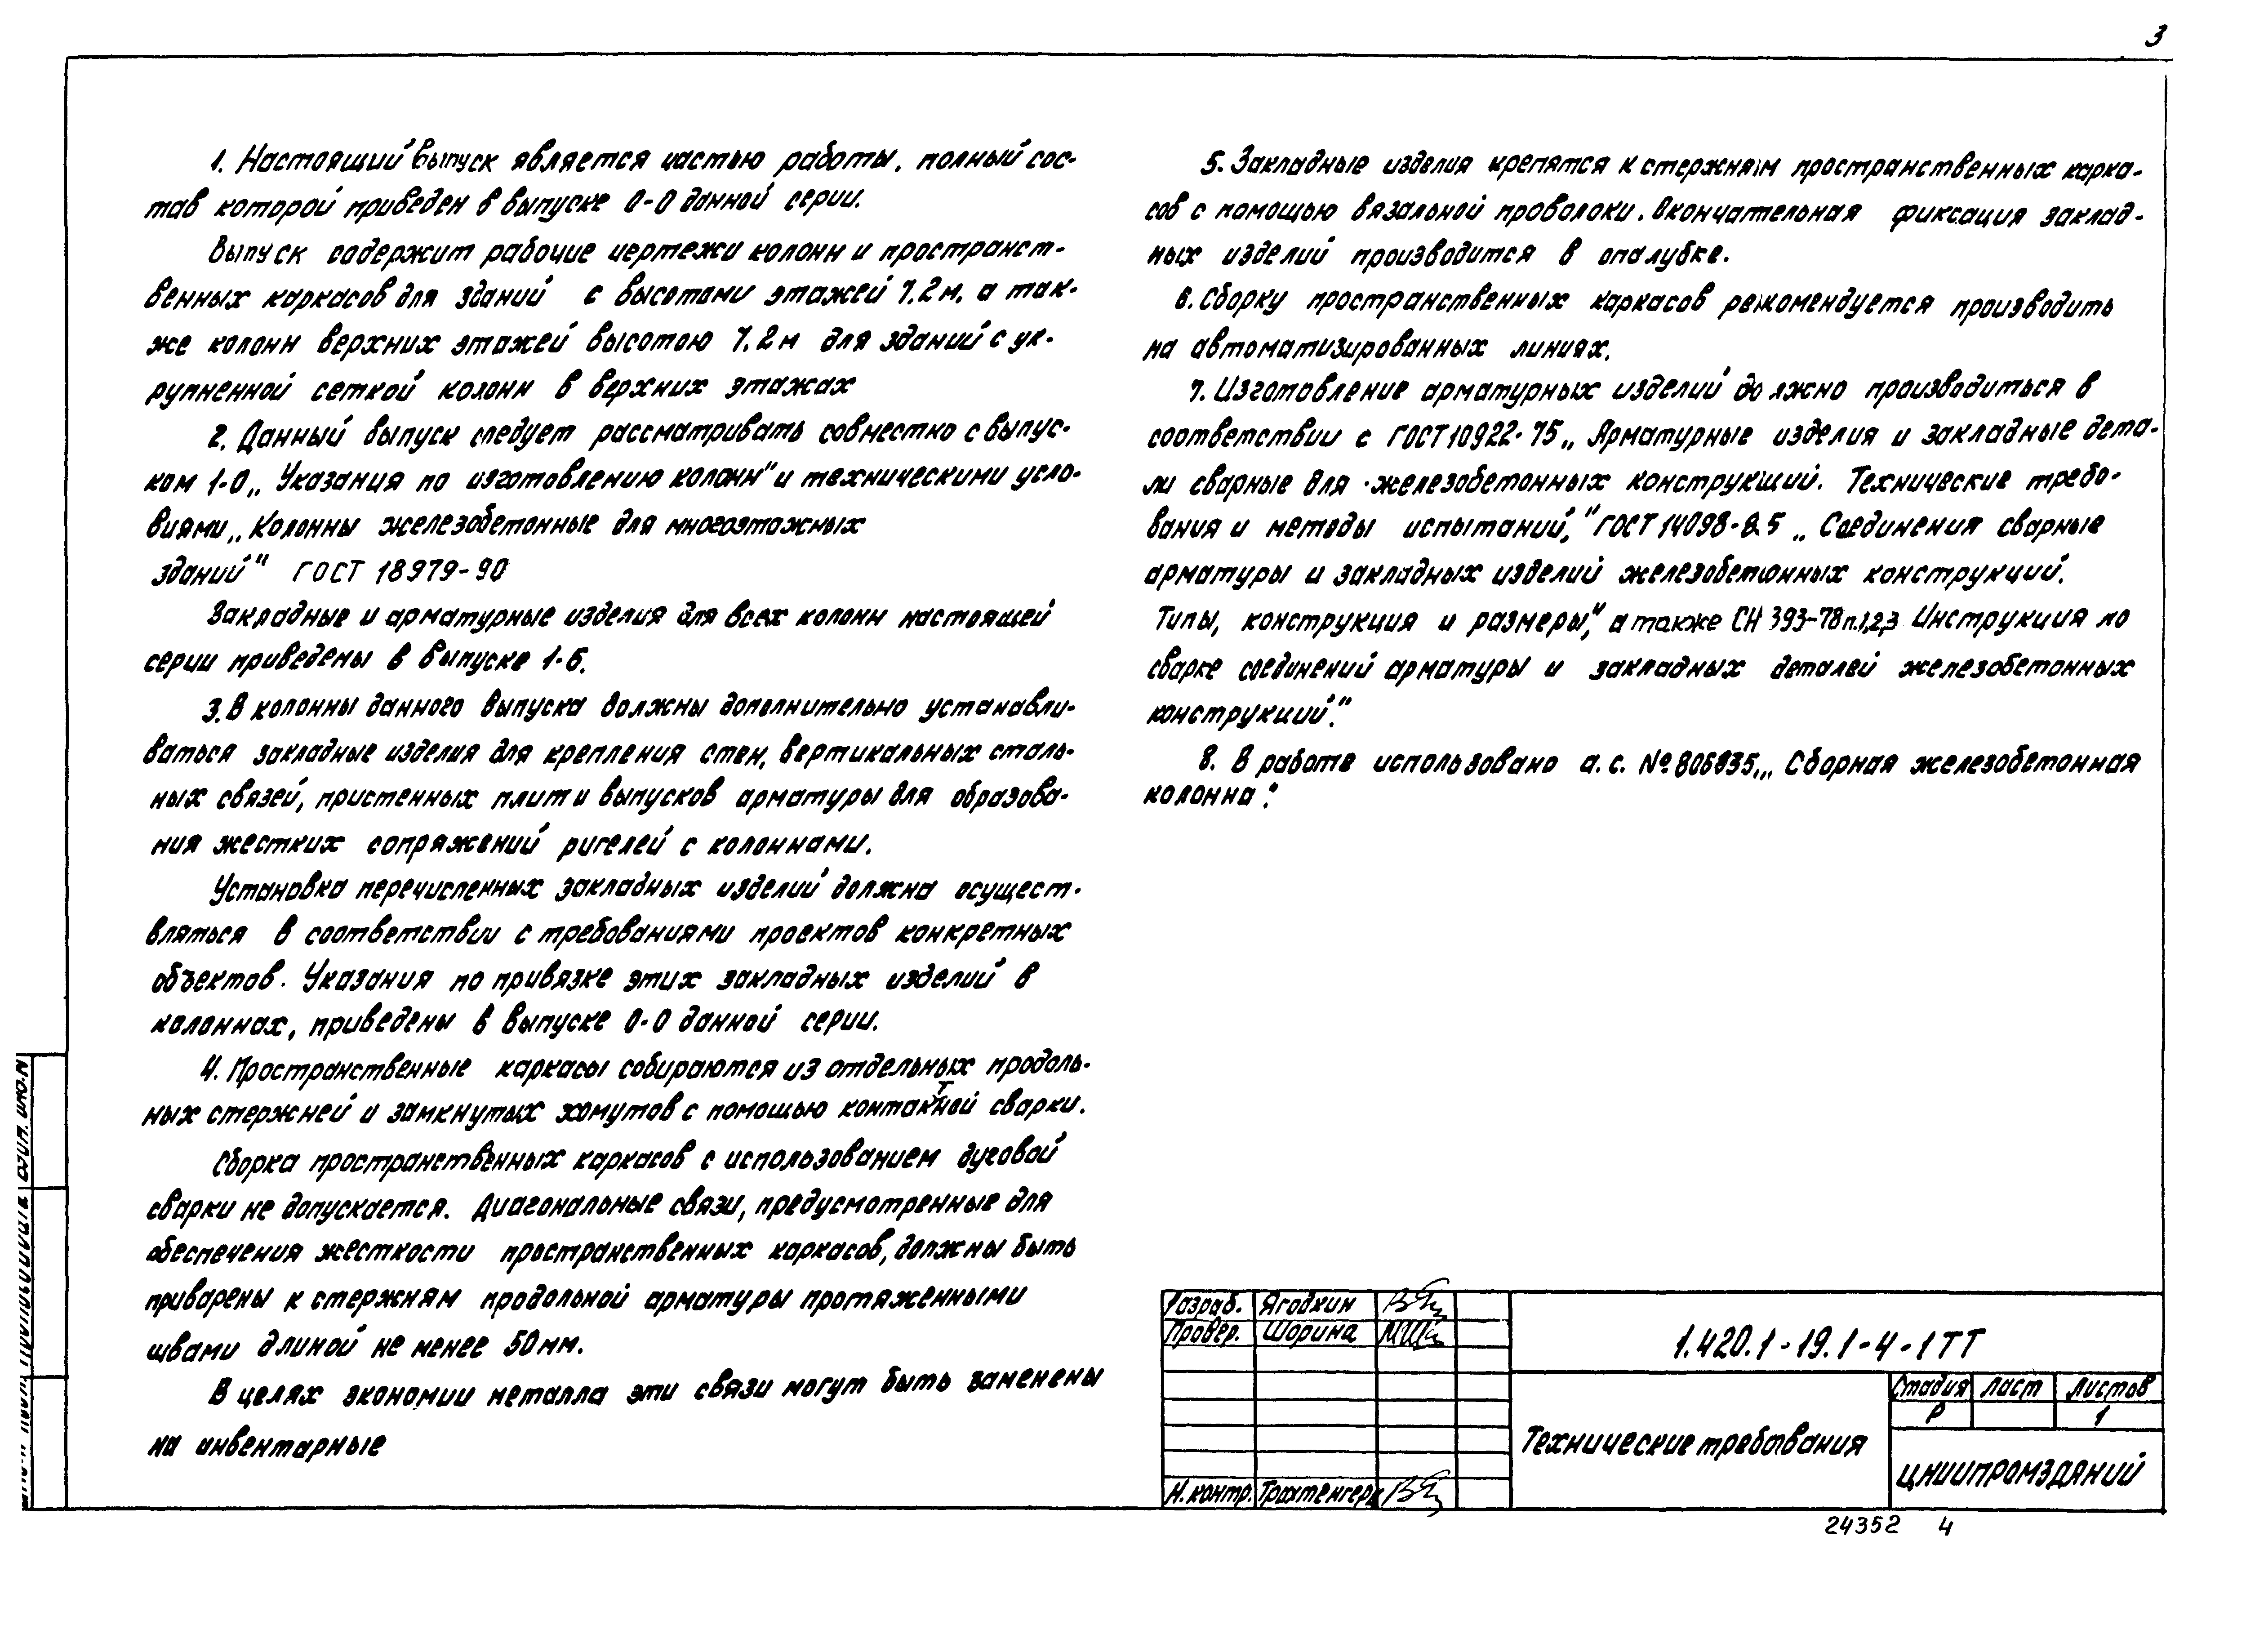 3
1. Настоящий выпуск является частью работы, полный сос-
тав которой приведен в выпуске 0-0 данной серии.
Выпуск содержит рабочие чертежи колонн и пространст-
венных каркасов для зданий с высотами этажей 7.2м, а так-
же колонн верхних этажей высотою 7.2м для зданий с ук-
рупненной сеткой колонн в верхних этажах
2. Данный выпуск следует рассматривать совместно с выпус-
ком 1-0 „Указания по изготовлению колонн" и техническими усло-
виями „Колонны железобетонные для многоэтажных
зданий" ГОСТ 18979-90
Закладные и арматурные изделия для всех колонн настоящей
серии приведены в выпуске 1-6.
3. В колонны данного выпуска должны дополнительно устанавли-
ваться закладные изделия для крепления стен, вертикальных сталь-
ных связей, пристенных плит и выпусков арматуры для образова-
ния жестких сопряжений ригелей с колоннами.
Установка перечисленных закладных изделий должна осущест-
вляться в соответствии с требованиями проектов конкретных
объектов. Указания по привязке этих закладных изделий в
колоннах, приведены в выпуске 0-0 данной серии.
4. Пространственные каркасы собираются из отдельных продоль-
ных стержней и замкнутых хомутов с помощью контактной сварки.
Сборка пространственных каркасов с использованием дуговой
сварки не допускается. Диагональные связи, предусмотренные для
обеспечения жесткости пространственных каркасов, должны быть
приварены к стержням продольной арматуры протяженными
швами длиной не менее 50мм.
В целях экономии металла эти связи могут быть заменены
на инвентарные
5. Закладные изделия крепятся к стержням пространственных карка-
сов с помощью вязальной проволоки. Окончательная фиксация заклад-
ных изделий производится в опалубке.
6. Сборку пространственных каркасов рекомендуется производить
на автоматизированных линиях.
7. Изготовление арматурных изделий должно производиться в
соответствии с ГОСТ 10922-75 „Арматурные изделия и закладные дета-
ли сварные для железобетонных конструкций. Технические требо-
вания и методы испытаний," ГОСТ 14098-85 „Соединения сварные
арматуры и закладных изделий железобетонных конструкций.
Типы, конструкция и размеры," а также СН 393-78 п.1,2,3 Инструкция по
сварке соединений арматуры и закладных деталей железобетонных
конструкций."
8. В работе использовано а.с. №806835 „Сборная железобетонная
колонна".
Разраб. Ягодкин
Провер. Шорина
Н.контр. Трахтенгерц
1.420.1-19.1-4-1ТТ
Технические требования
Стадия Лист Листов
Р 1
ЦНИИПРОМЗДАНИЙ
24352 4